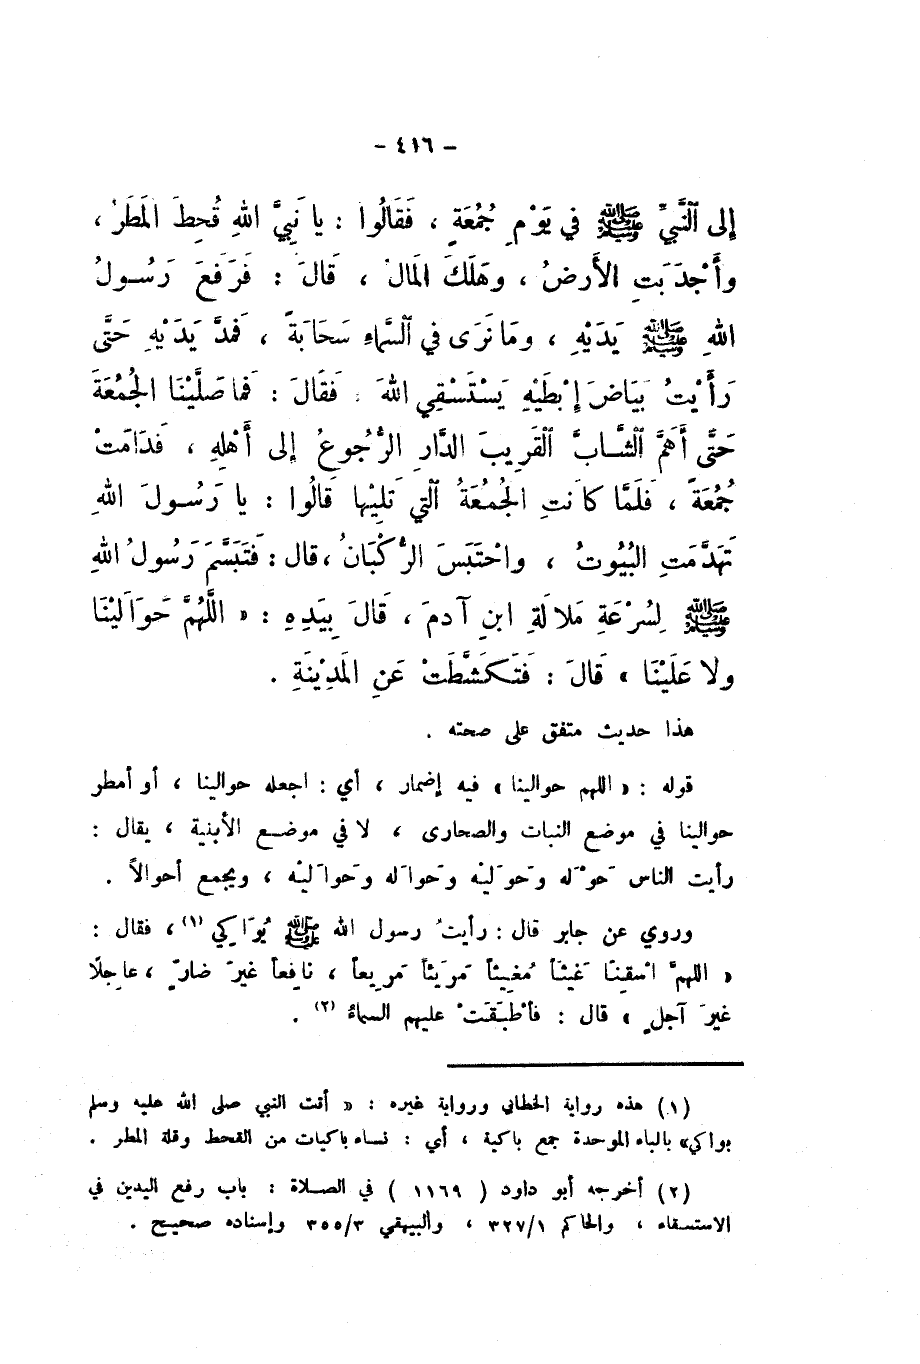 - ٤١٦ -
إِلى النَّبِيِّ ﷺ في يَوْمِ جُمُعَةٍ ، فَقَالُوا : يا نَبِيَّ اللهِ قُحِطَ المَطَرُ ،
وأَجْدَبَتِ الأَرضُ ، وهَلَكَ المَالُ ، قَالَ : فَرَفَعَ رَسُولُ
اللهِ ﷺ يَدَيْهِ ، ومَا نَرَى في السَّماءِ سَحَابَةً ، فَمدَّ يَدَيْهِ حَتَّى
رَأَيْتُ بَيَاضَ إِبْطَيْهِ يَسْتَسْقِي اللهَ . فَقَالَ : فما صَلَّيْنَا الجُمُعَةَ
حَتَّى أَهَمَّ الشَّابَّ القَرِيبَ الدَّارِ الرُّجُوعُ إلى أَهْلِهِ ، فَدَامَتْ
جُمُعَةً ، فَلَمَّا كانَتِ الجُمُعَةُ الَّتي تَلِيْها قَالُوا : يا رَسُولَ اللهِ
تَهَدَّمَتِ البُيُوتُ ، واحْتَبَسَ الرُّكْبَانُ ، قال : فَتَبَسَّمَ رَسُولُ اللهِ
ﷺ لِسُرْعَةِ مَلالَةِ ابنِ آدمَ ، قَالَ بِيَدِهِ : « اللَّهُمَّ حَوَالَيْنَا
ولا عَلَيْنَا » قَالَ : فَتَكَشَّطَتْ عَنِ المَدِيْنَةِ .
هذا حديث متفق على صحته .
قوله : « اللهم حوالينا » فيه إضمار ، أي : اجعله حوالينا ، أو أمطر
حوالينا في موضع النبات والصحارى ، لا في موضع الأبنية ، يقال :
رأيت الناس حَوْلَه وحَوَلَيْه وحَوالَه وحَوالَيْه ، ويجمع أحوالاً .
وروي عن جابر قال : رأيتُ رسول الله ﷺ يُوَاكِي (١) ، فقال :
« اللهمَّ اسْقِنَا غَيْثاً مُغيثاً مَريئاً مَريعاً ، نافعاً غيرَ ضارّ ، عاجلًا
غيرَ آجلٍ » قال : فأطْبَقَتْ عليهم السماءُ (٢) .
(١) هذه رواية الخطابي ورواية غيره : « أتت النبي صلى الله عليه وسلم
بواكي» بالباء الموحدة جمع باكية ، أي : نساء باكيات من القحط وقلة المطر .
(٢) أخرجه أبو داود ( ١١٦٩ ) في الصلاة : باب رفع اليدين في
الاستسقاء ، والحاكم ٣٢٧/١ ، والبيهقي ٣٥٥/٣ وإسناده صحيح .